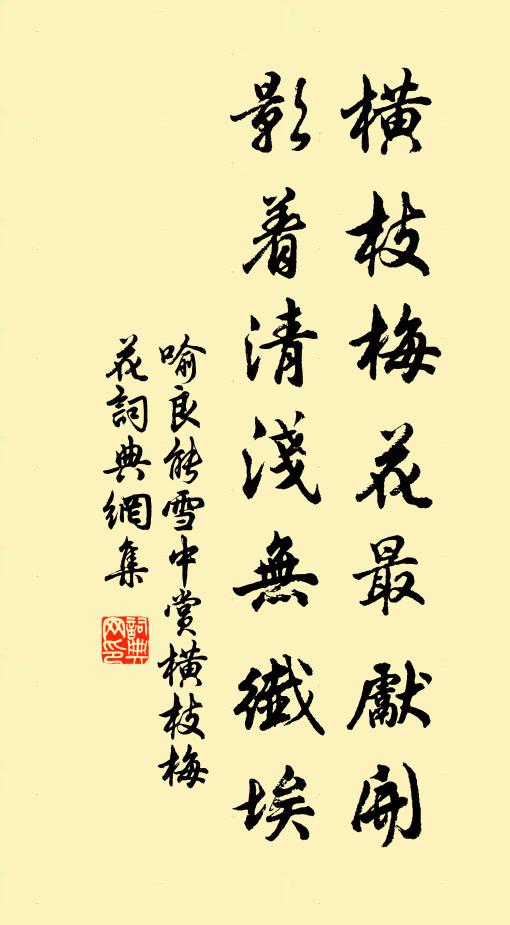 橫枝梅花最獻開
影着清淺無纖埃
喻良能雪中賞橫枝梅
花詞典網集
詞典網印